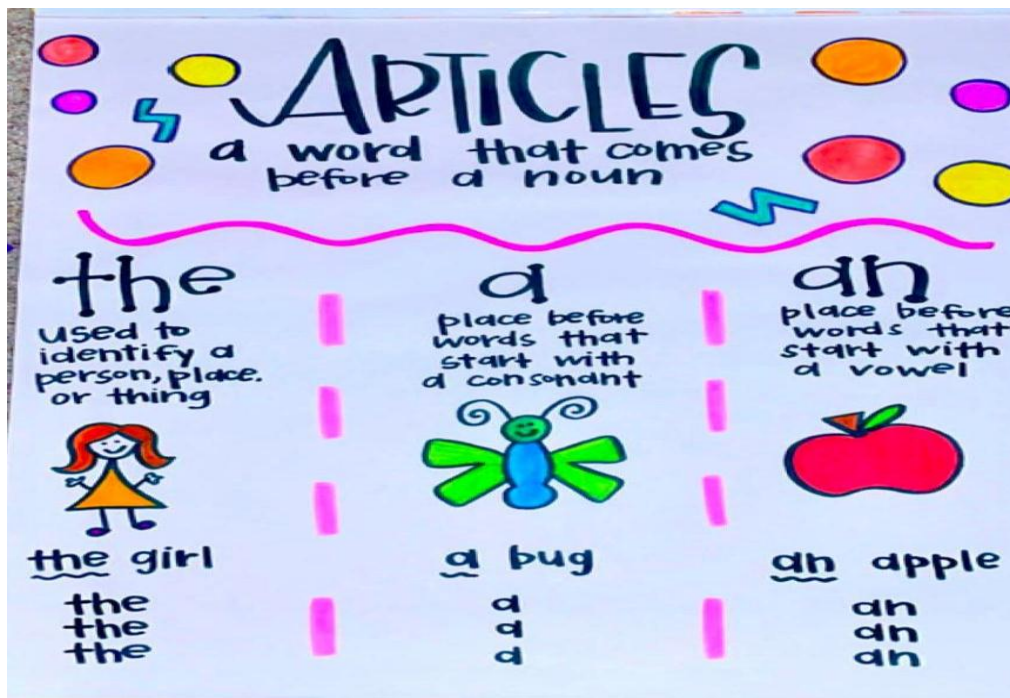 ARTICLES
a word that comes
before a noun
the
used to
identify a
person, place.
or thing
the girl
the
the
the
a
place before
words that
start with
a consonant
a bug
a
a
a
an
place before
words that
start with
a vowel
an apple
an
an
an